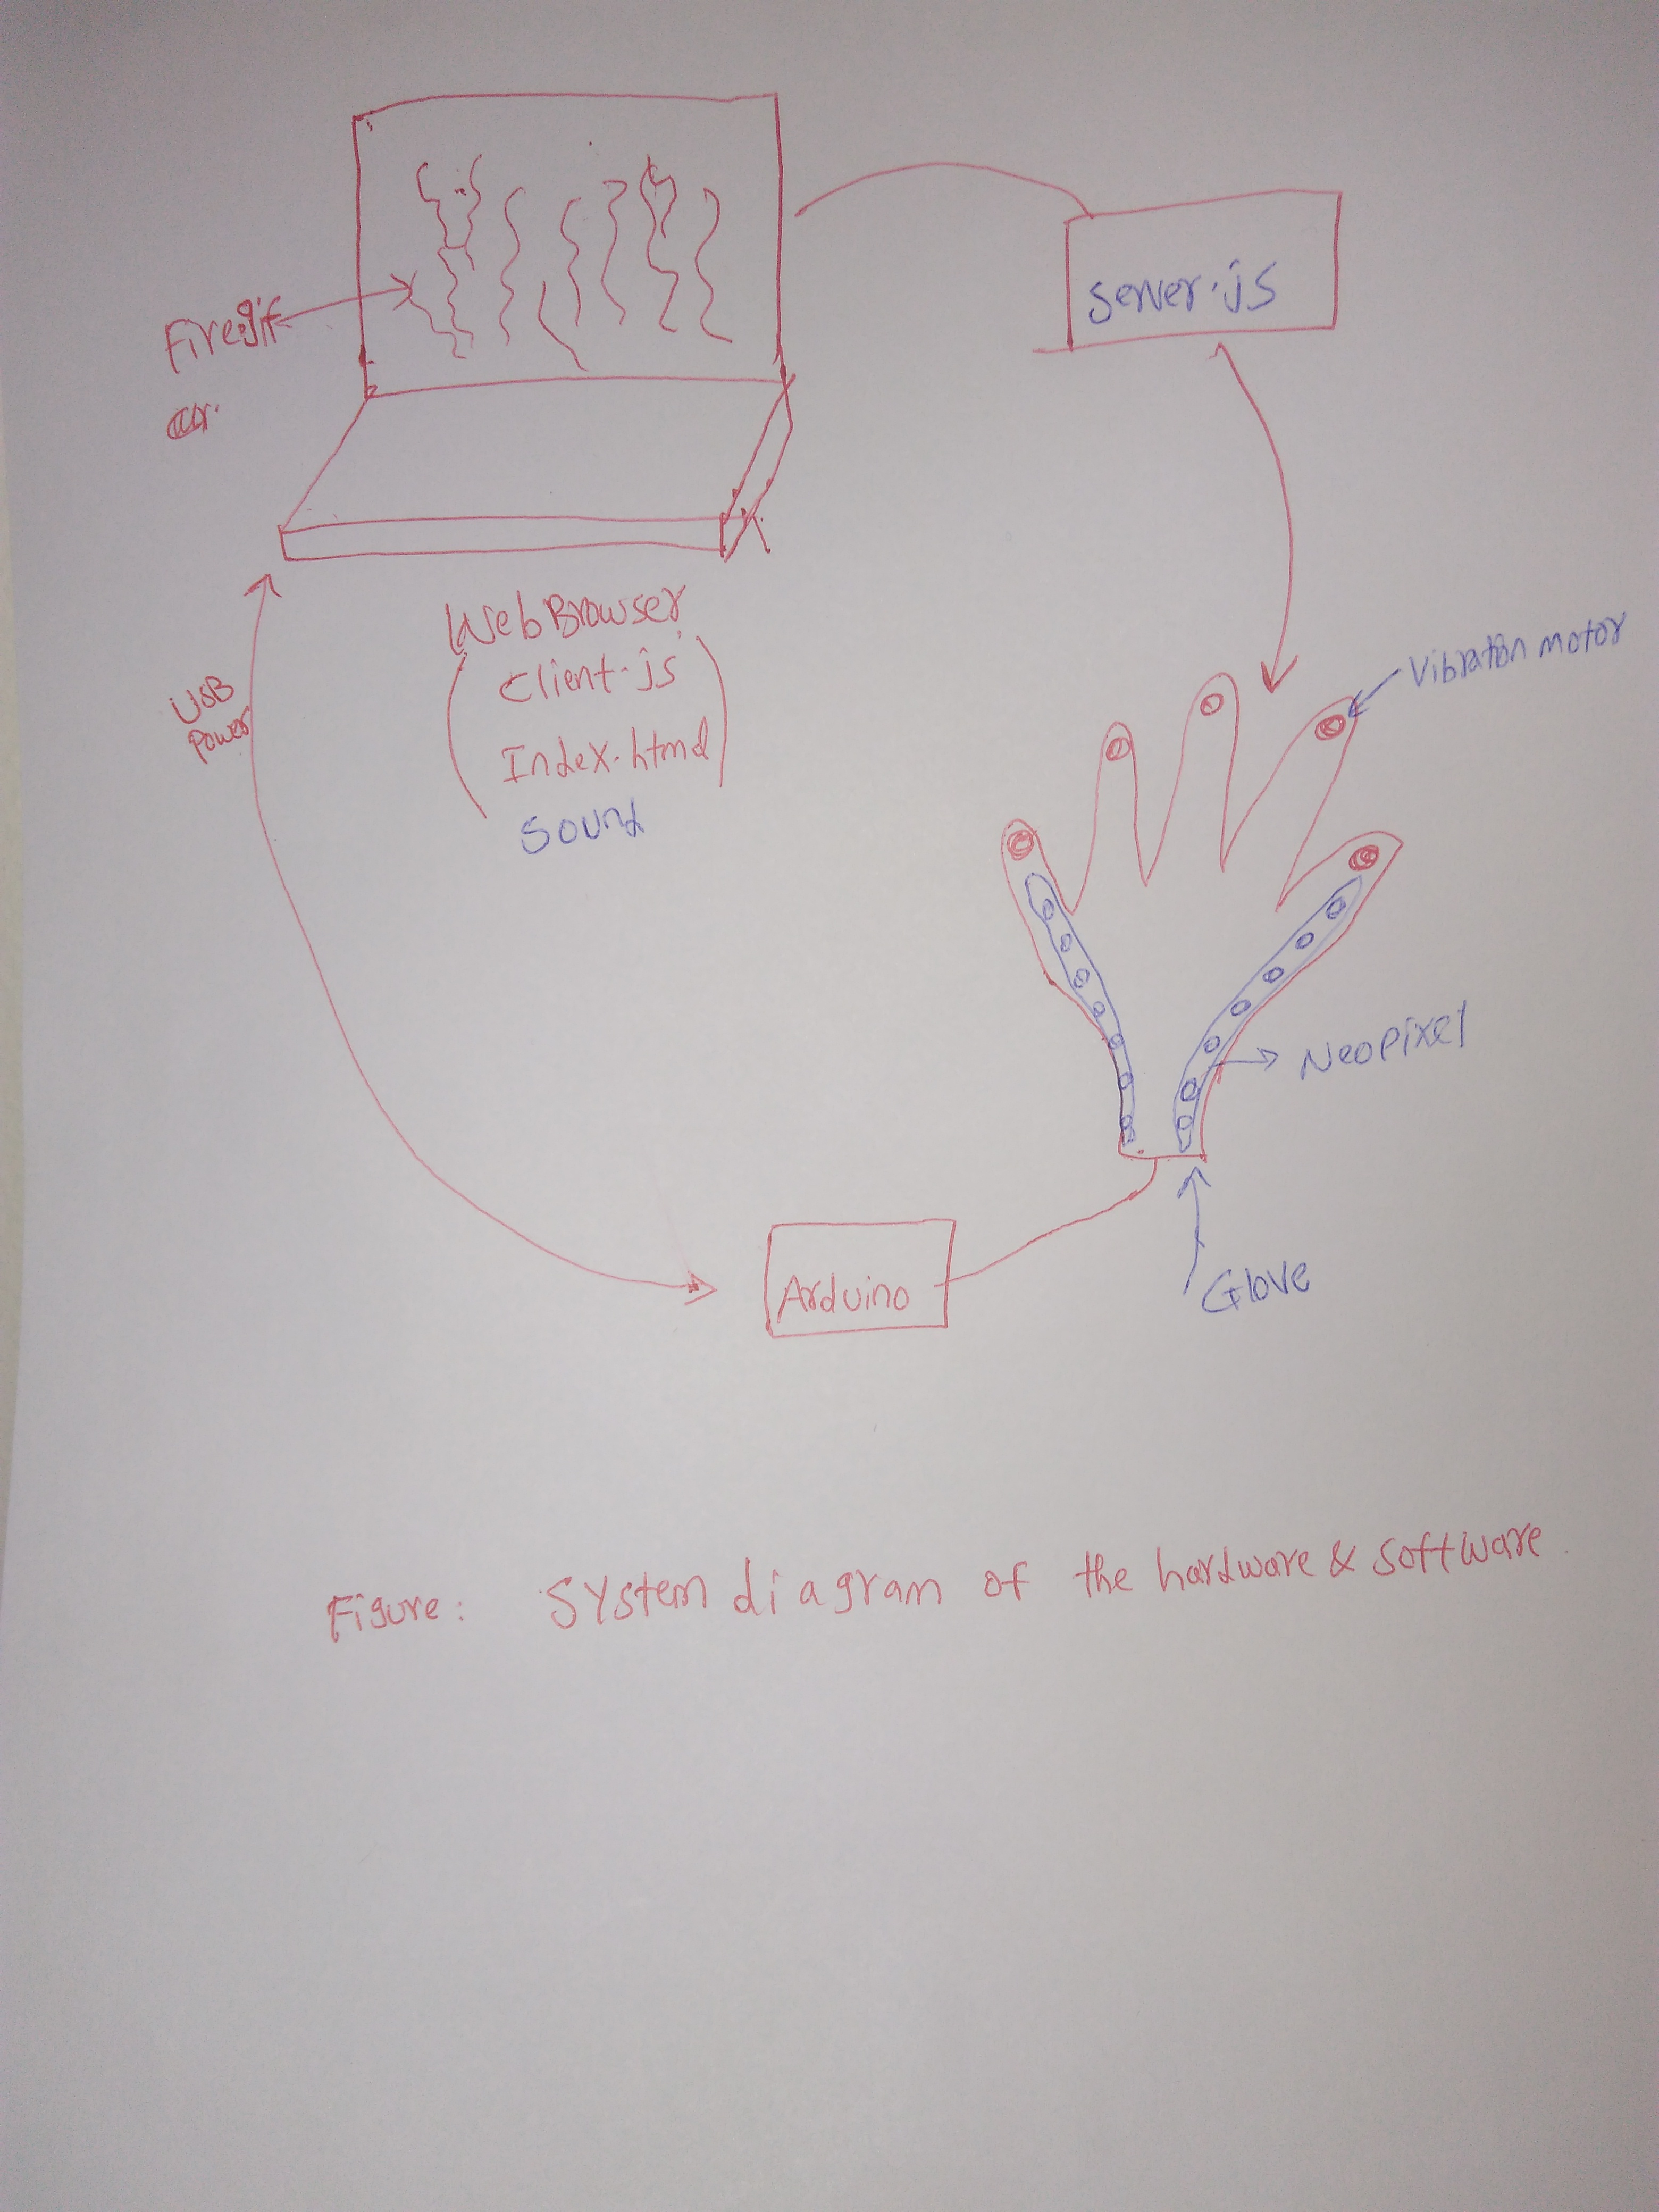 server.js
Firegif
WebBrowser
Client.js
Index.html
Sound
USB
Power
Vibration motor
Neopixel
Glove
Arduino
Figure: System diagram of the hardware & software.